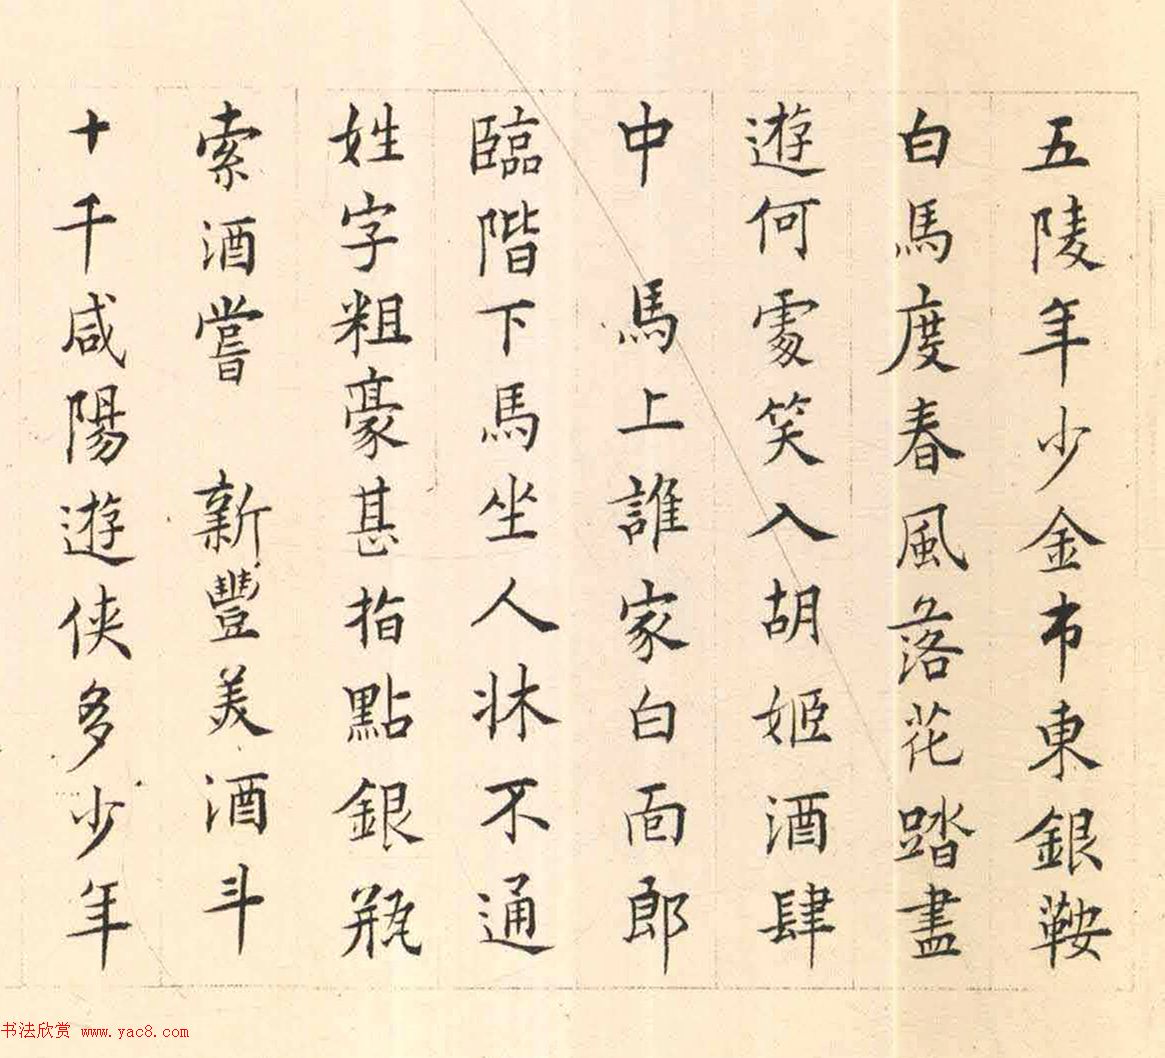 五陵年少金市東銀鞍
白馬度春風落花踏盡
遊何處笑入胡姬酒肆
中　馬上誰家白面郎
臨階下馬坐人牀不通
姓字粗豪甚指點銀瓶
索酒嘗　新豐美酒斗
十千咸陽遊俠多少年
书法欣赏 www.yac8.com